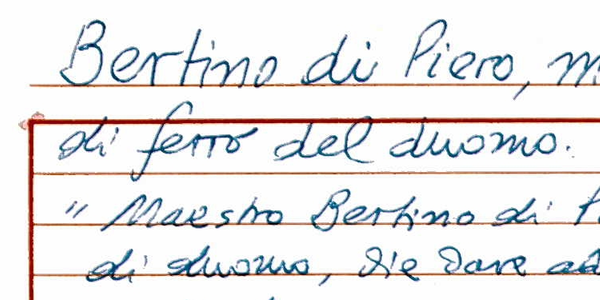 Bertino di Piero,
di ferro del duomo.
" Maestro Bertino di
di duomo, die dare